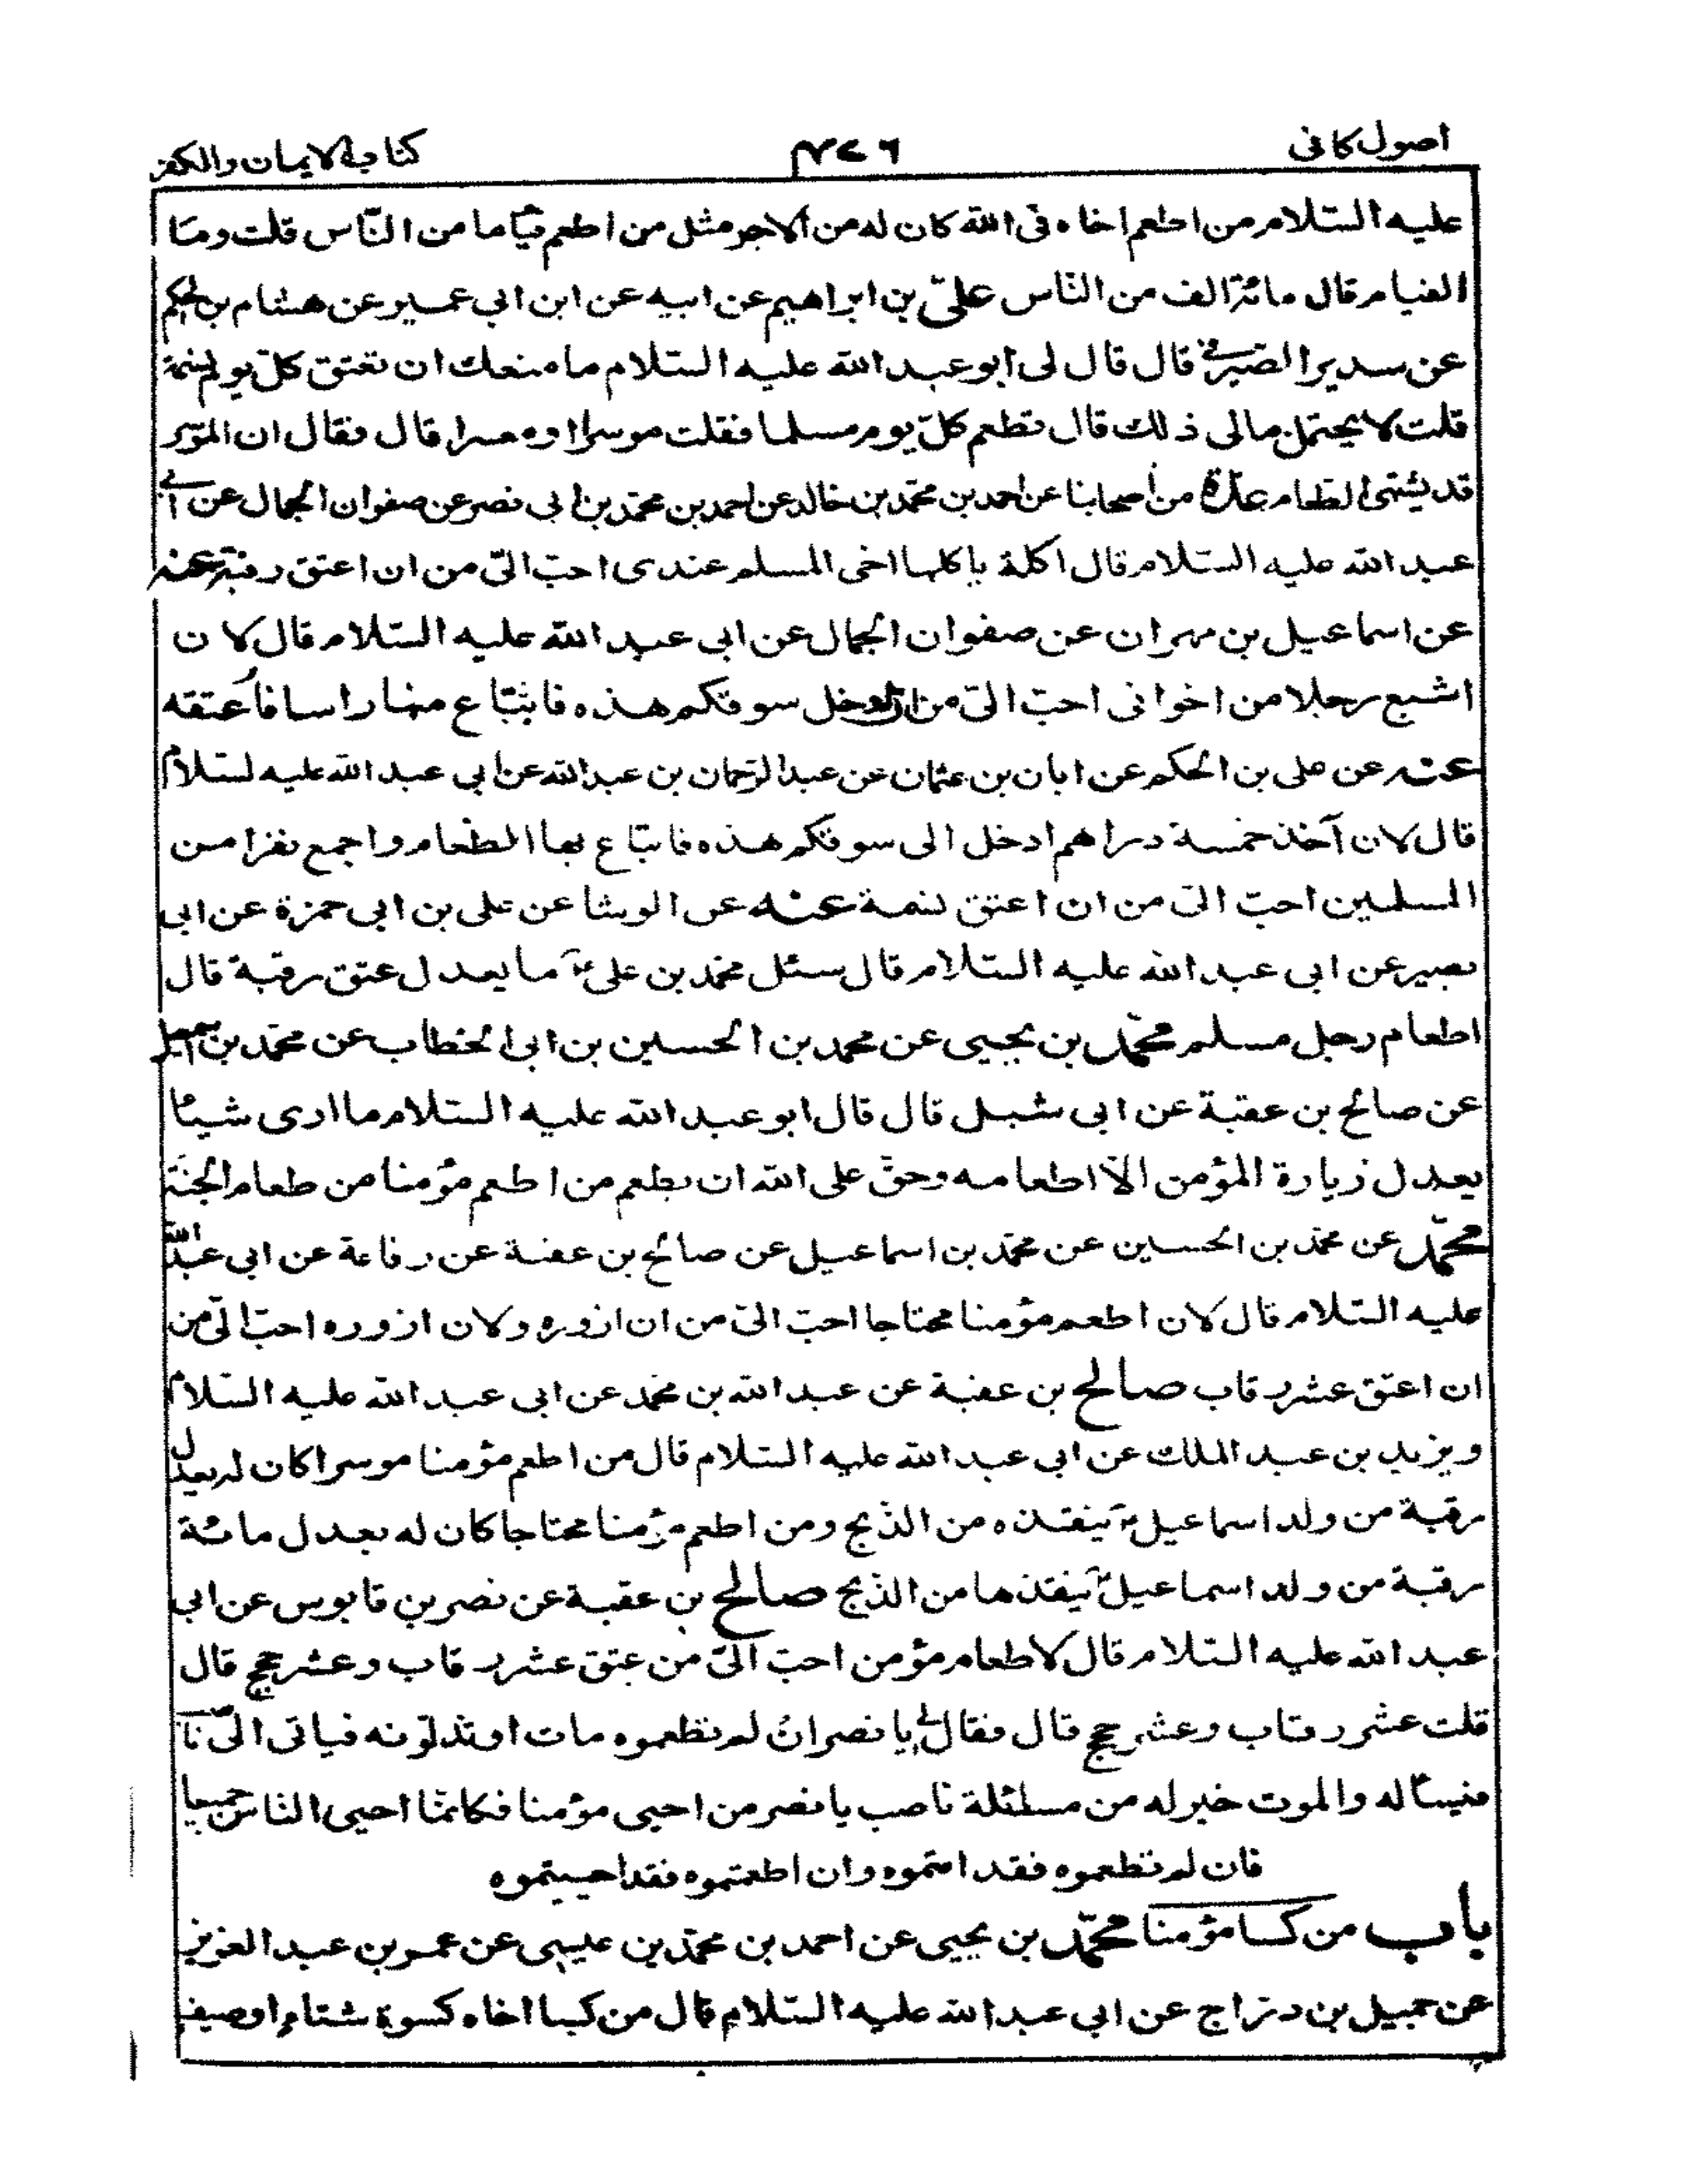 اصول كافى ٤٢٦ كتاب الايمان والكفر
عليه السّلام من اطعم اخاه فى الله كان له من الاجر مثل من اطعم فئاما من النّاس قلت وما
الفيام قال مائة الف من النّاس علىّ بن ابراهيم عن ابيه عن ابن ابى عمير عن هشام بن الحكم
عن سدير الصّيرفى قال قال لى ابو عبد الله عليه السّلام ما منعك ان تعتق كلّ يوم نسمة
قلت لا يحتمل مالى ذلك قال تطعم كلّ يوم مسلما فقلت موسرا او معسرا قال فقال ان الموسر
قد يشتهى الطعام عدّة من اصحابنا عن احمد بن محمّد بن خالد عن احمد بن محمّد بن ابى نصر عن صفوان الجمال عن ابى
عبد الله عليه السّلام قال اكلة ياكلها اخى المسلم عندى احبّ الىّ من ان اعتق رقبة عنه
عن اسماعيل بن مهران عن صفوان الجمال عن ابى عبد الله عليه السّلام قال لان
اشبع رجلا من اخوانى احبّ الىّ من ان ادخل سوقكم هذه فابتاع منها راسا فاعتقه
عنه عن على بن الحكم عن ابان بن عثمان عن عبد الرّحمان بن عبد الله عن ابى عبد الله عليه السّلام
قال لان آخذ خمسة دراهم ادخل الى سوقكم هذه فابتاع بها الطعام واجمع نفرا من
المسلمين احبّ الىّ من ان اعتق نسمة عنه عن الوشا عن على بن ابى حمزة عن ابى
بصير عن ابى عبد الله عليه السّلام قال سئل محمّد بن على ع ما يعدل عتق رقبة قال
اطعام رجل مسلم محمّد بن يحيى عن محمد بن الحسين بن ابى الخطاب عن محمّد بن اسمعيل
عن صالح بن عقبة عن ابى شبل قال قال ابو عبد الله عليه السّلام ما ارى شيئا
يعدل زيارة المؤمن الّا اطعامه وحقّ على الله ان يطعم من اطعم مؤمنا من طعام الجنّة
محمّد عن محمّد بن الحسين عن محمّد بن اسماعيل عن صالح بن عقبة عن رفاعة عن ابى عبد الله
عليه السّلام قال لان اطعم مؤمنا محتاجا احبّ الىّ من ان ازوره ولان ازوره احبّ الىّ من
ان اعتق عشر رقاب صالح بن عقبة عن عبد الله بن محمّد عن ابى عبد الله عليه السّلام
ويزيد بن عبد الملك عن ابى عبد الله عليه السّلام قال من اطعم مؤمنا موسرا كان له يعدل
رقبة من ولد اسماعيل ع ينقذه من الذّبح ومن اطعم مؤمنا محتاجا كان له يعدل مائة
رقبة من ولد اسماعيل ع ينقذها من الذّبح صالح بن عقبة عن نصر بن قابوس عن ابى
عبد الله عليه السّلام قال لاطعام مؤمن احبّ الىّ من عتق عشر رقاب وعشر حجج قال
قلت عشر رقاب وعشر حجج قال فقال لى يا نصر ان لم تطعموه مات او تذلّونه فياتى الى نا
فيساله والموت خير له من مسئلة ناصب يا نصر من احيى مؤمنا فكانّما احيى الناس جميعا
فان لم تطعموه فقد امتموه وان اطعمتموه فقد احييتموه
باب من كسا مؤمنا محمّد بن يحيى عن احمد بن محمّد بن عيسى عن عمر بن عبد العزيز
عن جميل بن درّاج عن ابى عبد الله عليه السّلام قال من كسا اخاه كسوة شتاء او صيف